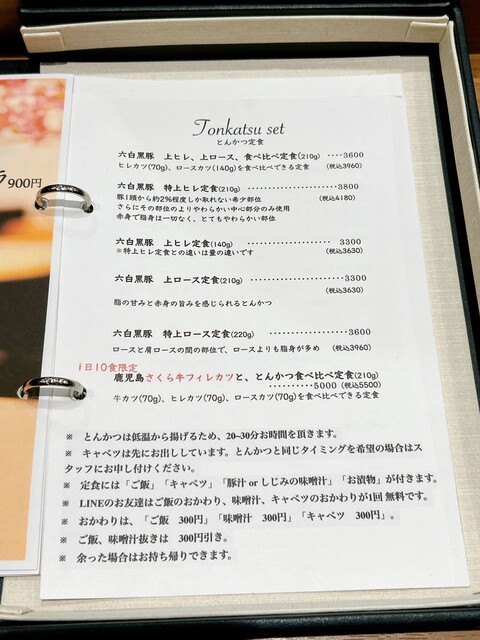 ラ900円
Tonkatsu set
とんかつ定食
六白黒豚 上ヒレ、上ロース、食べ比べ定食(210g) ････3600
ヒレカツ(70g)、ロースカツ(140g)を食べ比べできる定食 (税込3960)
六白黒豚 特上ヒレ定食(210g) ････････････････････3800
豚1頭から約2%程度しか取れない希少部位 (税込4180)
さらにその部位のよりやわらかい中心部分のみ使用
赤身で脂身は一切なく、とてもやわらかい部位
六白黒豚 上ヒレ定食(140g) ･･････････････････ 3300
※特上ヒレ定食との違いは量の違いです (税込3630)
六白黒豚 上ロース定食(210g) ･･････････････････ 3300
(税込3630)
脂の甘みと赤身の旨みを感じられるとんかつ
六白黒豚 特上ロース定食(220g) ･･････････････････3600
ロースと肩ロースの間の部位で、ロースよりも脂身が多め (税込3960)
1日10食限定
鹿児島さくら牛フィレカツと、とんかつ食べ比べ定食(210g)
･･････････5000(税込5500)
牛カツ(70g)、ヒレカツ(70g)、ロースカツ(70g)を食べ比べできる定食
※ とんかつは低温から揚げるため、20~30分お時間を頂きます。
※ キャベツは先にお出ししています。とんかつと同じタイミングを希望の場合はス
タッフにお申し付けください。
※ 定食には「ご飯」「キャベツ」「豚汁 or しじみの味噌汁」「お漬物」が付きます。
※ LINEのお友達はご飯のおかわり、味噌汁、キャベツのおかわりが1回 無料です。
※ おかわりは、「ご飯 300円」「味噌汁 300円」「キャベツ 300円」。
※ ご飯、味噌汁抜きは 300円引き。
※ 余った場合はお持ち帰りできます。